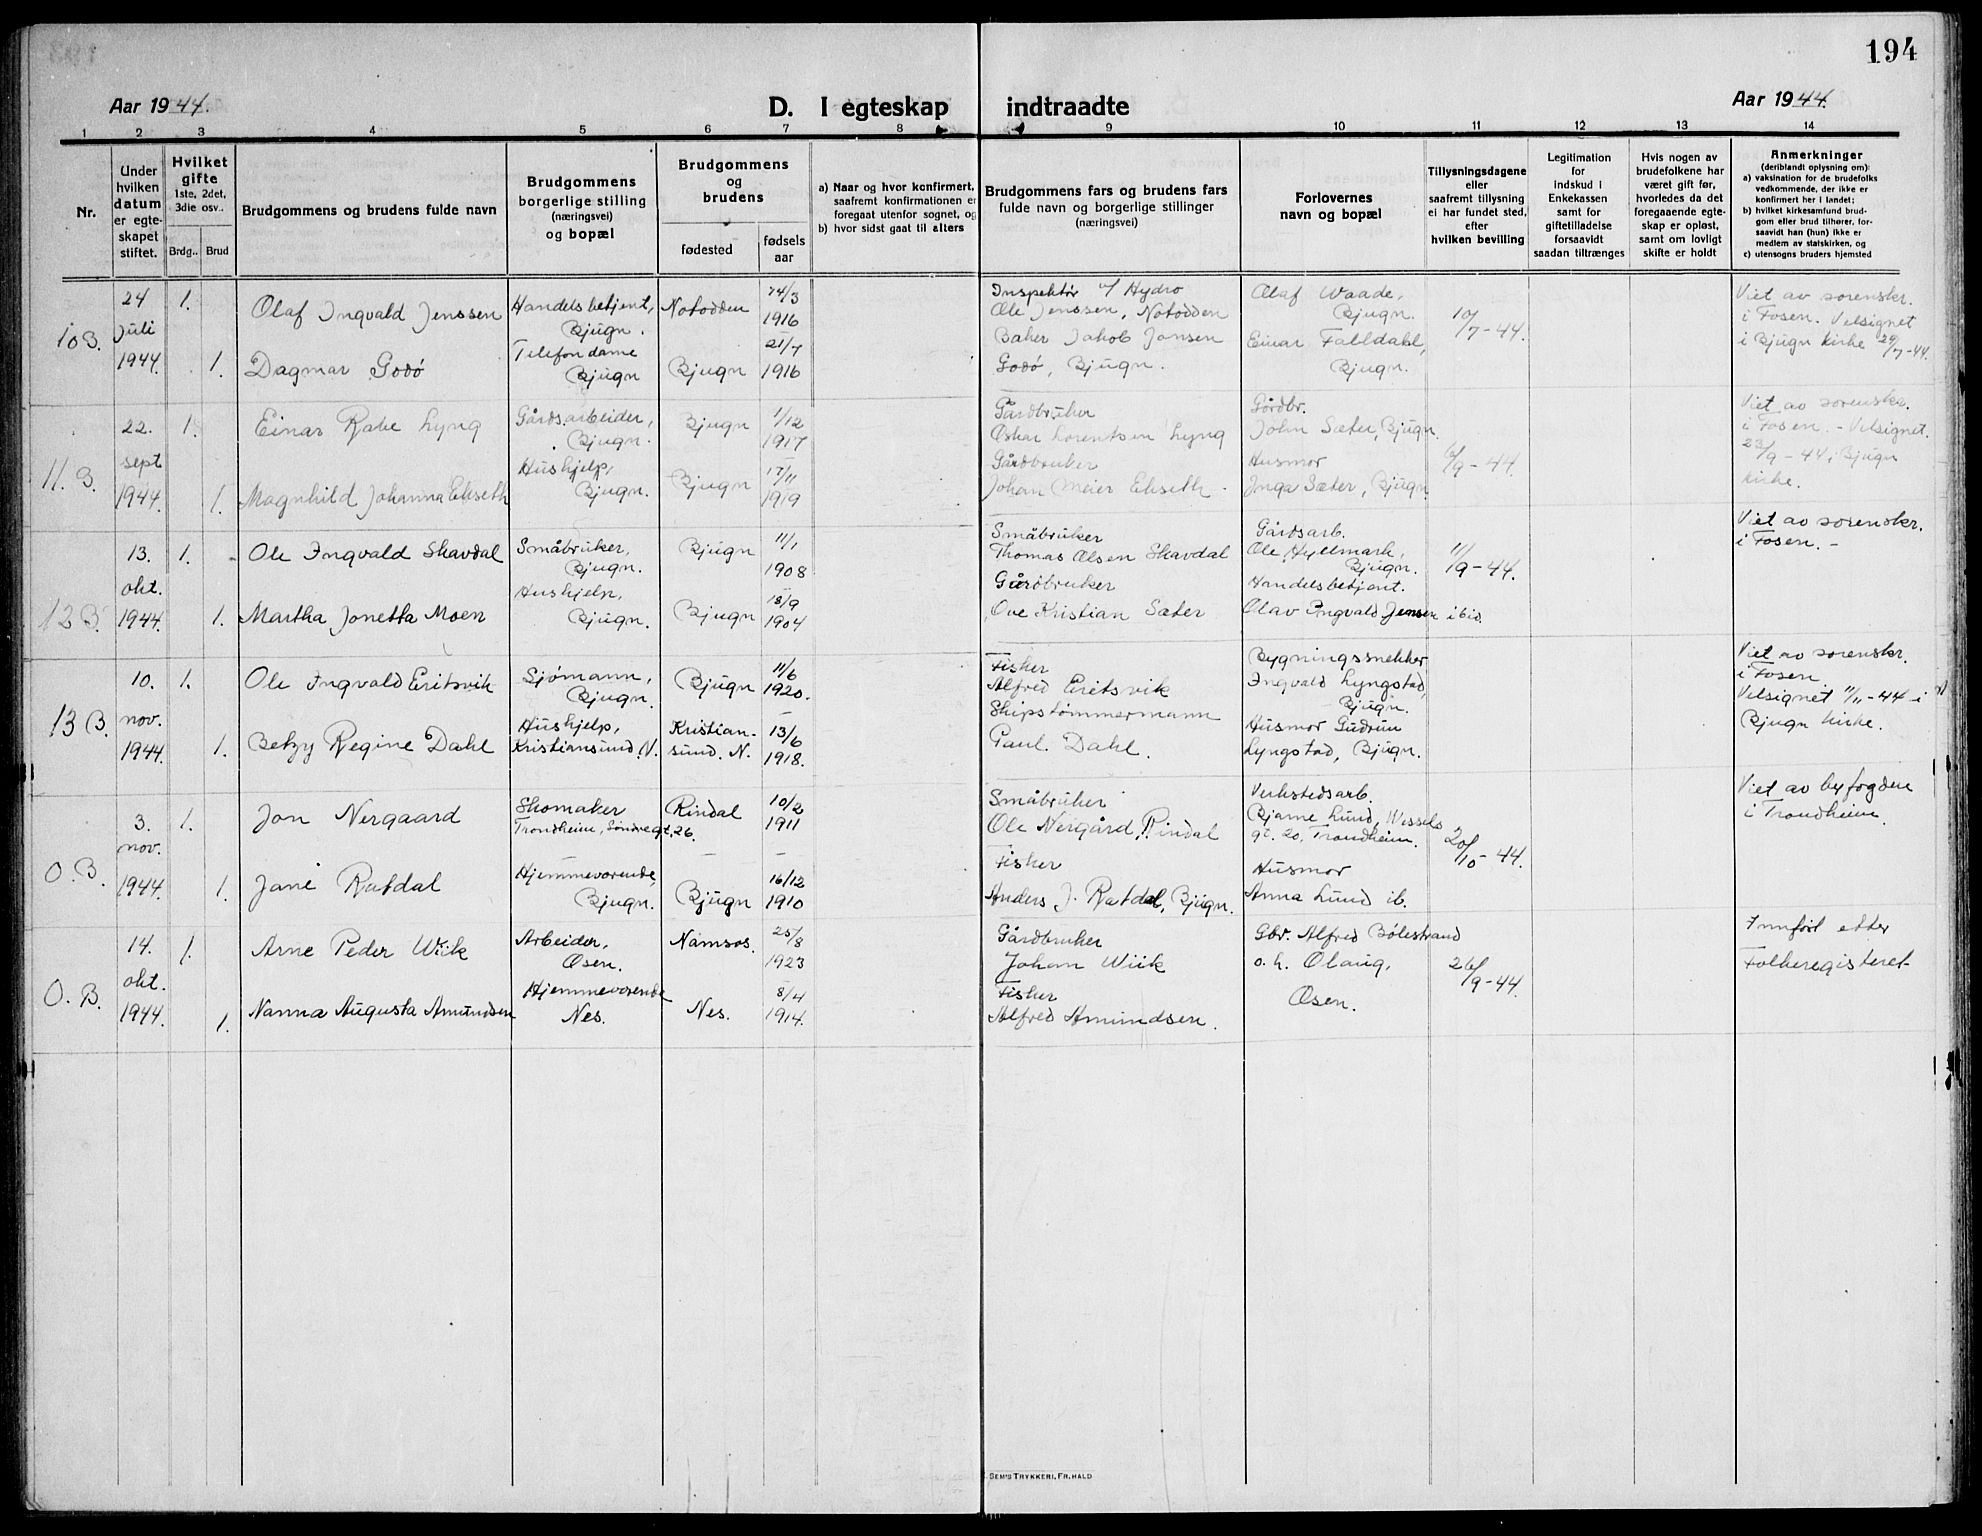 194
Aar 1944.
D. I egteskap indtraadte
Aar 1944.
1 2 3 4 5 6 7 8 9 10 11 12 13 14
Nr.
Under
hvilken
datum
er egte-
skapet
stiftet.
Hvilket
gifte
1ste, 2det,
3die osv..
Brdg.. Brud
Brudgommens og brudens fulde navn
Brudgommens
borgerlige stilling
(næringsvei)
og bopæl
Brudgommens
og
brudens
fødested
fødsels
aar
a) Naar og hvor konfirmert,
saafremt konfirmationen er
foregaat utenfor sognet, og
b) hvor sidst gaat til alters
Brudgommens fars og brudens fars
fulde navn og borgerlige stillinger
(næringsvei)
Forlovernes
navn og bopæl
Tillysningsdagene
eller
saafremt tillysning
ei har fundet sted,
efter
hvilken bevilling
Legitimation
for
indskud i
Enkekassen
samt for
giftetilladelse
forsaavidt
saadan tiltrænges
Hvis nogen av
brudefolkene har
været gift før,
hvorledes da det
foregaaende egte-
skap er opløst,
samt om lovligt
skifte er holdt
Anmerkninger
(deriblandt oplysning om:)
a) vaksination for de brudefolks
vedkommende, der ikke er
konfirmert her i landet;
b) hvilket kirkesamfund brud-
gom eller brud tilhører, for-
saavidt han (hun) ikke er
medlem av statskirken, og
c) utensogns bruders hjemsted
10B.
24
Juli
1944.
1.
1.
Olaf Ingvald Jenssen
Dagmar Godø
Handelsbetjent,
Bjugn.
Telefondame
Bjugn
Notodden
Bjugn
14/3
1916
21/7
1916
Inspektør v/ Hydro
Ole Jenssen, Notodden
Baker Jakob Jansen
Godø, Bjugn.
Olaf Waade,
Bjugn.
Einar Falldahl,
Bjugn.
10/7-44.
Viet av sorenskr.
i Fosen. Velsignet
i Bjugn Kirke 29/7-44.
11. B.
22.
sept
1944.
1.
1.
Einar Rabe Lyng
Magnhild Johanna Ekseth
Gårdsarbeider,
Bjugn.
Hushjelp,
Bjugn.
Bjugn
Bjugn
1/12
1917
17/11
1919
Gårdbruker
Oskar Lorentsen Lyng
Gårdbruker
Johan Meier Ekseth.
Gårdbr.
John Sæter, Bjugn.
Husmor
Inga Sæter, Bjugn
6/9-44.
Viet av sorenskr.
i Fosen. - Velsignet.
23/9-44 i Bjugn
Kirke.
12B.
13.
okt.
1944.
1.
1.
Ole Ingvald Skavdal
Martha Jonetta Moen
Småbruker,
Bjugn.
Hushjelp,
Bjugn.
Bjugn
Bjugn
11/1
1908
18/9
1904
Småbruker
Thomas Olsen Skavdal
Gårdbruker
Ove Kristian Sæter
Gårdsarb.
Ole Hyllmark,
Bjugn.
Handelsbetjent.
Olav Ingvald Jensen ibid.
11/9-44.
Viet av sorenskr.
i Fosen. -
13 B.
10.
nov.
1944.
1.
1.
Ole Ingvald Eritsvik
Betzy Regine Dahl
Sjømann,
Bjugn.
Hushjelp,
Kristiansund N.
Bjugn
Kristian-
sund. N.
11/6
1920.
13/6
1918.
Fisker
Alfred Eritsvik
Skipstømmermann
Paul. Dahl.
Bygningssnekker
Ingvald Lyngstad,
Bjugn.
Husmor Gudrun
Lyngstad, Bjugn.
Viet av sorenskr.
i Fosen
Velsignet 11/11-44 i
Bjugn Kirke.
O. B.
3.
nov.
1944.
1.
1.
Jon Nergaard
Jane Ratdal
Skomaker
Trondheim, Søndregt. 26.
Hjemmeværende,
Bjugn.
Rindal
Bjugn
10/2
1911
16/12
1910
Småbruker
Ole Nergård, Rindal
Fisker
Anders J. Ratdal, Bjugn.
Verkstedsarb.
Bjarne Lund, Wessels
gt. 20, Trondheim.
Husmor
Anna Lund ib.
20/10-44.
Viet av byfogden
i Trondheim.
O. B.
14.
okt.
1944.
1.
1.
Arne Peder Wiik
Nanna Augusta Amundsen
Arbeider,
Osen.
Hjemmeværende
Nes.
Namsos.
Nes.
25/8
1923
8/4
1914.
Gårdbruker
Johan Wiik
Fisker
Alfred Amundsen.
Gbr. Alfred Bølestrand
o. h. Olaug,
Osen.
26/9-44.
Innført etter
Folkeregisteret
SEM'S TRYKKERI, FR.HALD